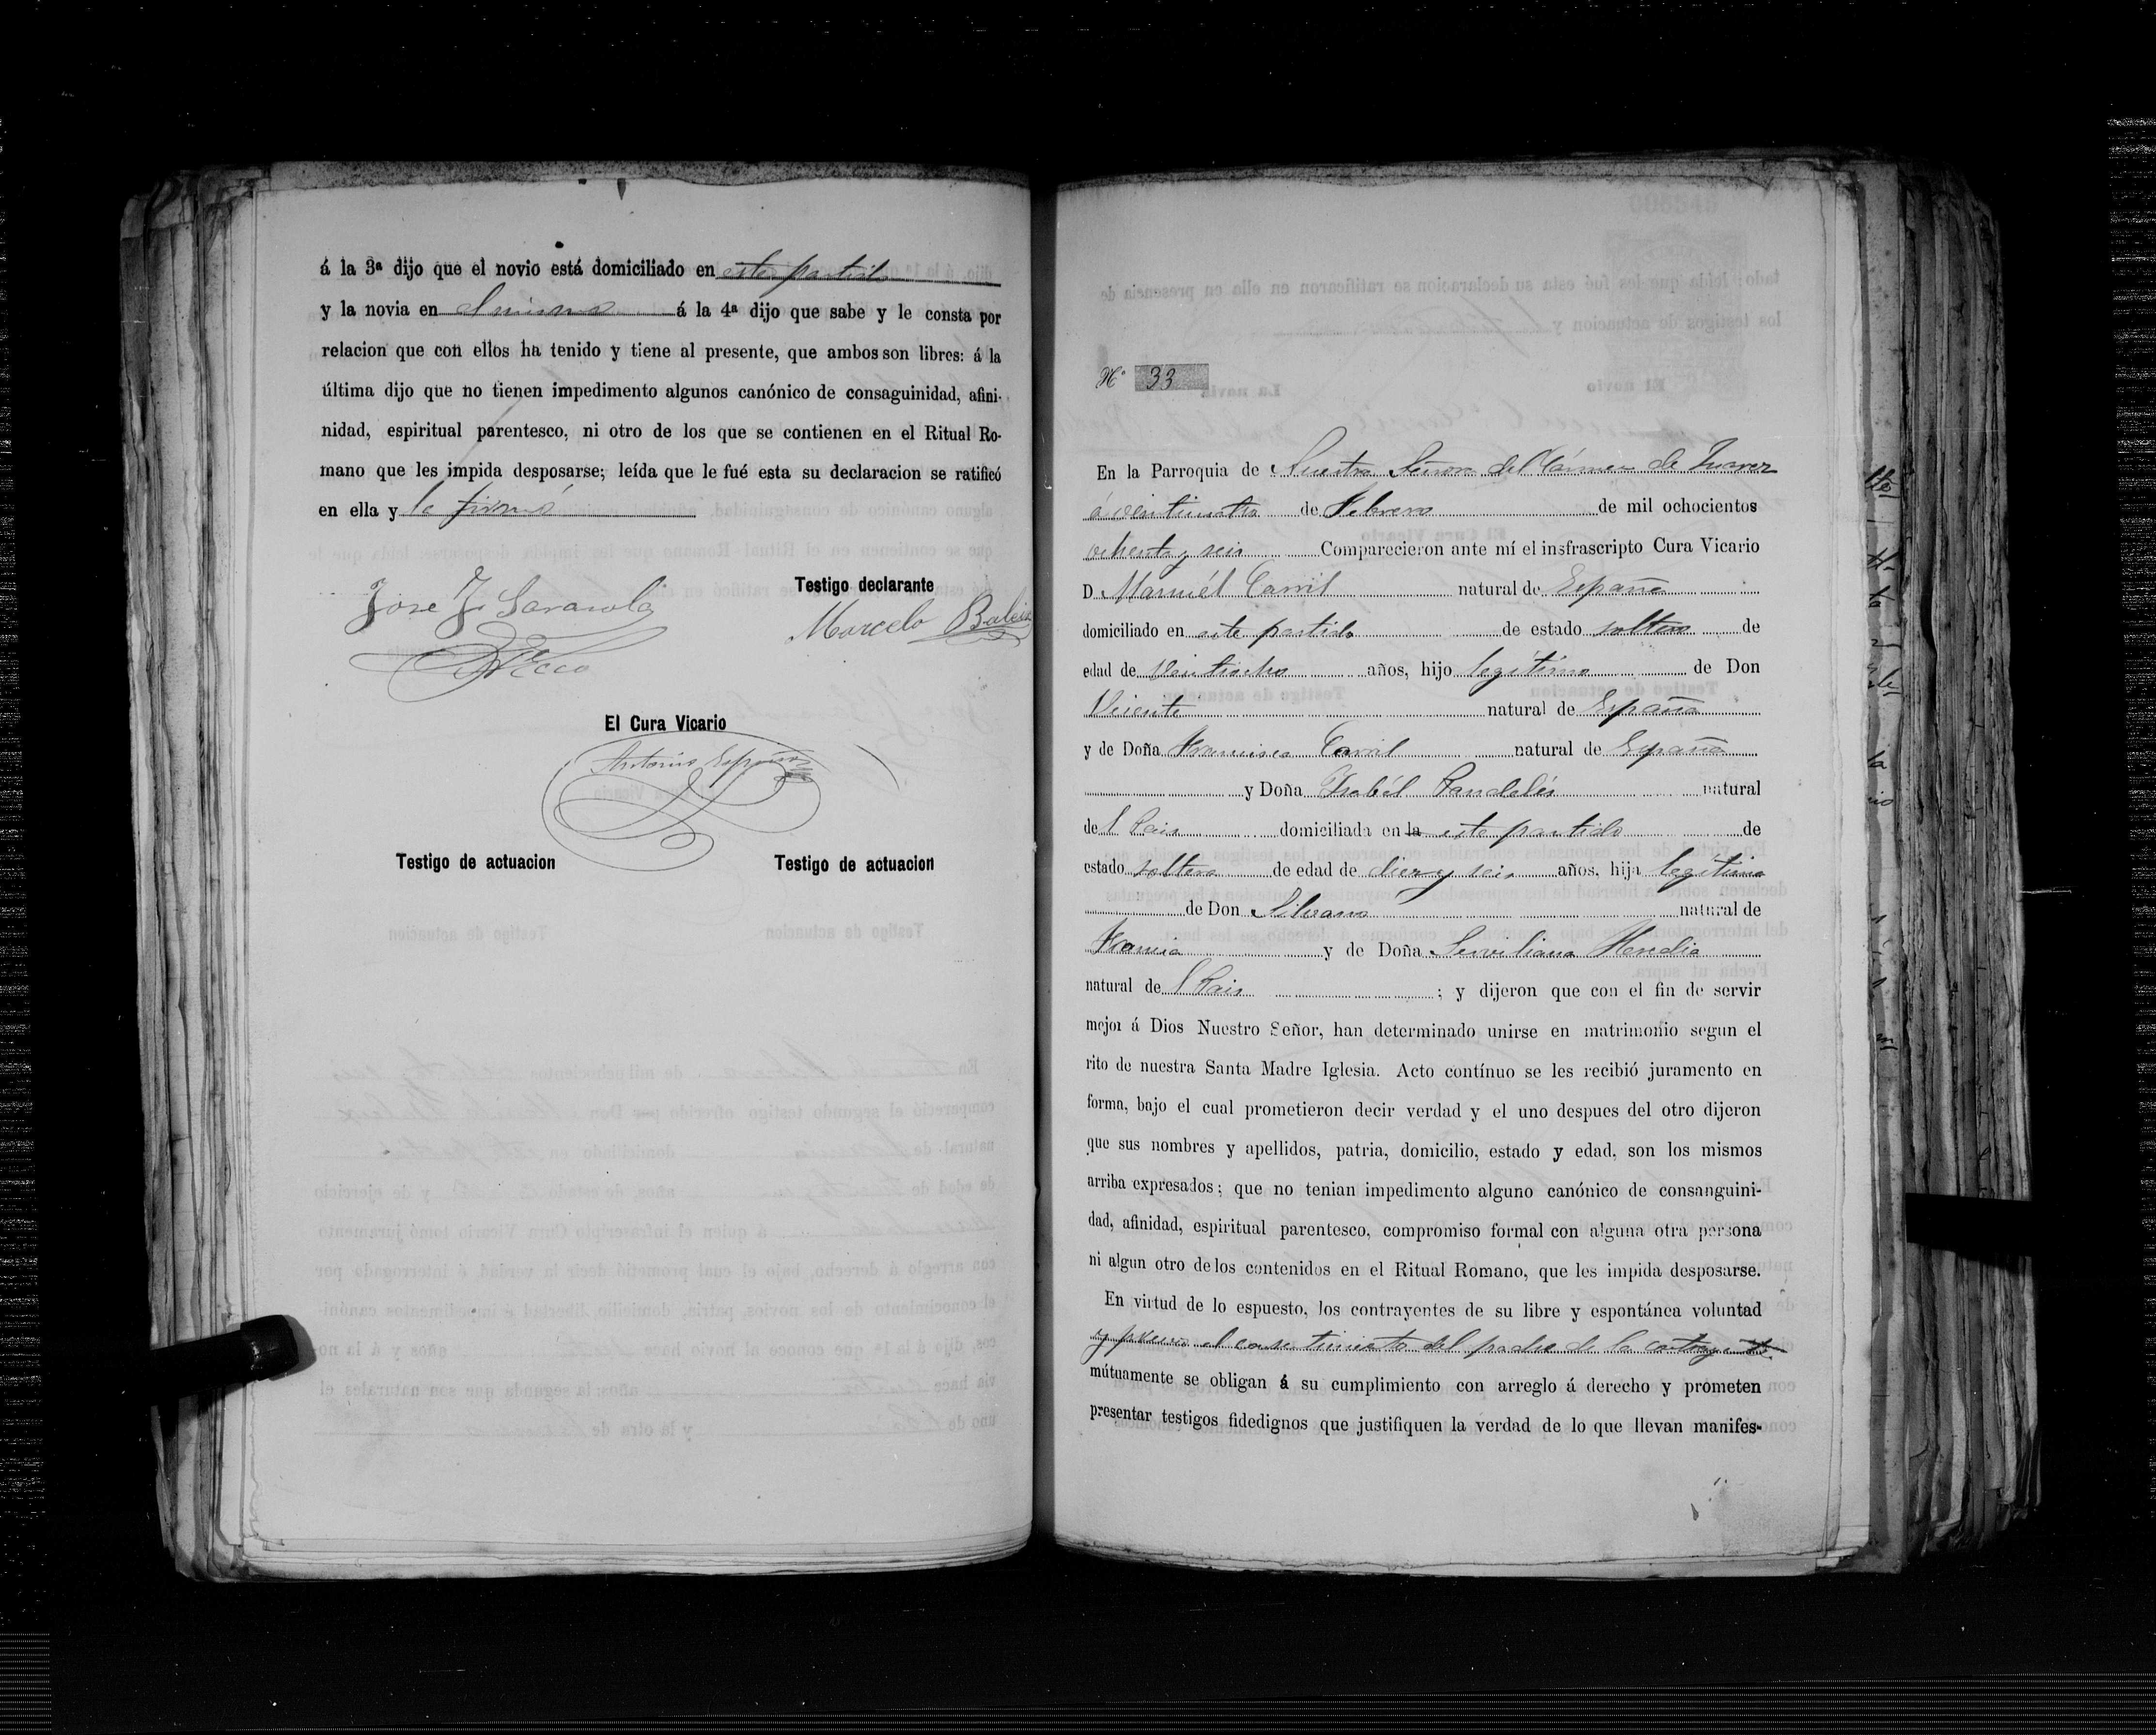 á la 3ª dijo que el novio está domiciliado en este partido
y la novia en el mismo á la 4ª dijo que sabe y le consta por
relacion que con ellos ha tenido y tiene al presente, que ambos son libres: á la
última dijo que no tienen impedimento algunos canónico de consaguinidad, afini-
nidad, espiritual parentesco, ni otro de los que se contienen en el Ritual Ro-
mano que les impida desposarse; leída que le fué esta su declaracion se ratificó
en ella y lo firmó
Testigo declarante
Jose J. Sarasola
Marcelo
El Cura Vicario
Antonio Espinosa
Testigo de actuacion Testigo de actuacion
Nº 33
En la Parroquia de Nuestra Señora del Cármen de Juarez
á veinticuatro de Febrero de mil ochocientos
ochenta y seis Comparecieron ante mí el insfrascripto Cura Vicario
D. Manuél Carril natural de España
domiciliado en este partido de estado soltero de
edad de veintiocho años, hijo legítimo de Don
Vicente natural de España
y de Doña Francisca Carril natural de España
y Doña Isabél natural
del Pais domiciliada en la este partido de
estado soltera de edad de diez y seis años, hija legítima
de Don Silvano natural de
Francia y de Doña Serviliana Heredia
natural del Pais ; y dijeron que con el fin de servir
mejor á Dios Nuestro Señor, han determinado unirse en matrimonio segun el
rito de nuestra Santa Madre Iglesia. Acto contínuo se les recibió juramento en
forma, bajo el cual prometieron decir verdad y el uno despues del otro dijeron
que sus nombres y apellidos, patria, domicilio, estado y edad, son los mismos
arriba expresados; que no tenian impedimento alguno canónico de consanguini-
dad, afinidad, espiritual parentesco, compromiso formal con alguna otra persona
ni algun otro de los contenidos en el Ritual Romano, que les impida desposarse.
En virtud de lo espuesto, los contrayentes de su libre y espontánea voluntad
y previo el consentimiento del padre de la contrayente
mútuamente se obligan á su cumplimiento con arreglo á derecho y prometen
presentar testigos fidedignos que justifiquen la verdad de lo que llevan manifes-